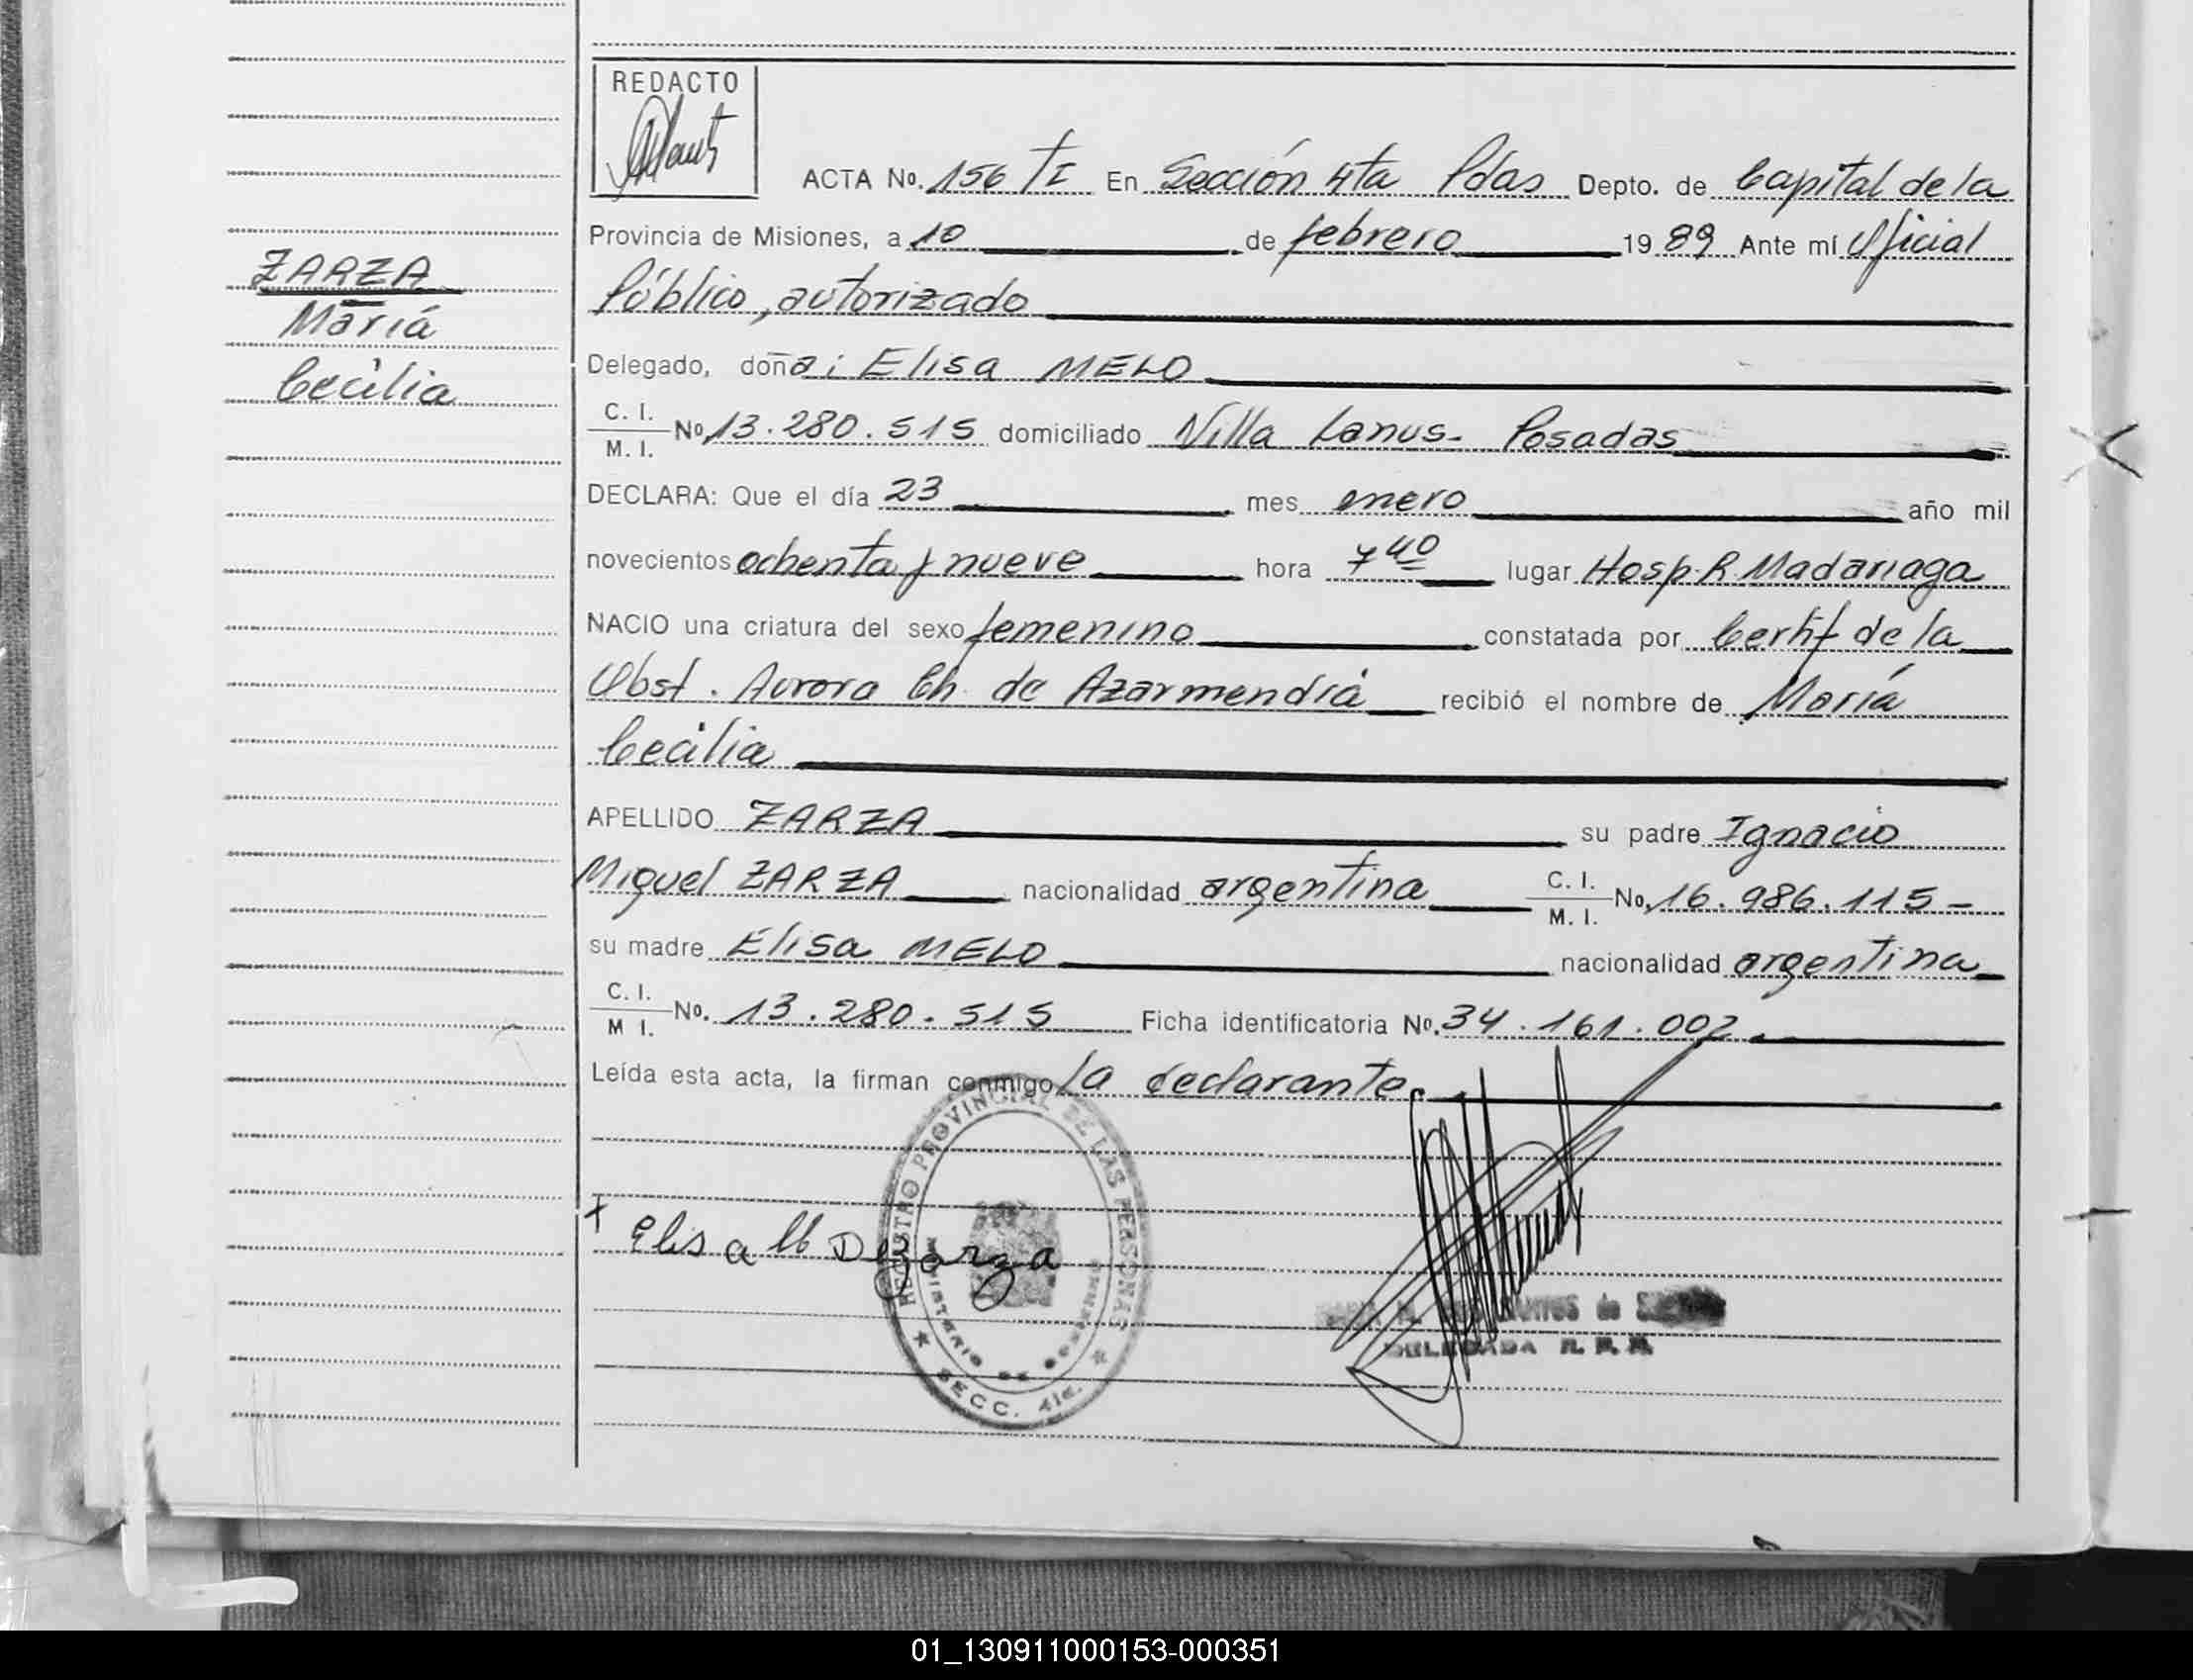 REDACTO
ACTA No. 156 TI En Sección 4ta Pdas Depto. de Capital de la
Provincia de Misiones, a 10 de febrero 1989 Ante mí Oficial
Público, autorizado
ZARZA
María
Cecilia
Delegado, doña: Elisa MELO
C. I. / M. I. No. 13.280.515 domiciliado Villa Lanus- Posadas
DECLARA: Que el día 23 mes enero año mil
novecientos ochenta y nueve hora 7 40 lugar Hosp. R. Madariaga
NACIO una criatura del sexo femenino constatada por Certif de la
Obst. Aurora Ch. de Azarmendia recibió el nombre de María
Cecilia
APELLIDO ZARZA su padre Ignacio
Miguel ZARZA nacionalidad argentina C. I. / M. I. No. 16.986.115-
su madre Elisa MELO nacionalidad argentina
C. I. / M I. No. 13.280.515 Ficha identificatoria No. 34.161.002
Leída esta acta, la firman conmigo la declarante.
REGISTRO PROVINCIAL DE LAS PERSONAS
MINISTERIO DE GOBIERNO
SECC. 4ta.
Elisa M De Zarza
DELEGADA R. P. P.
01_130911000153-000351